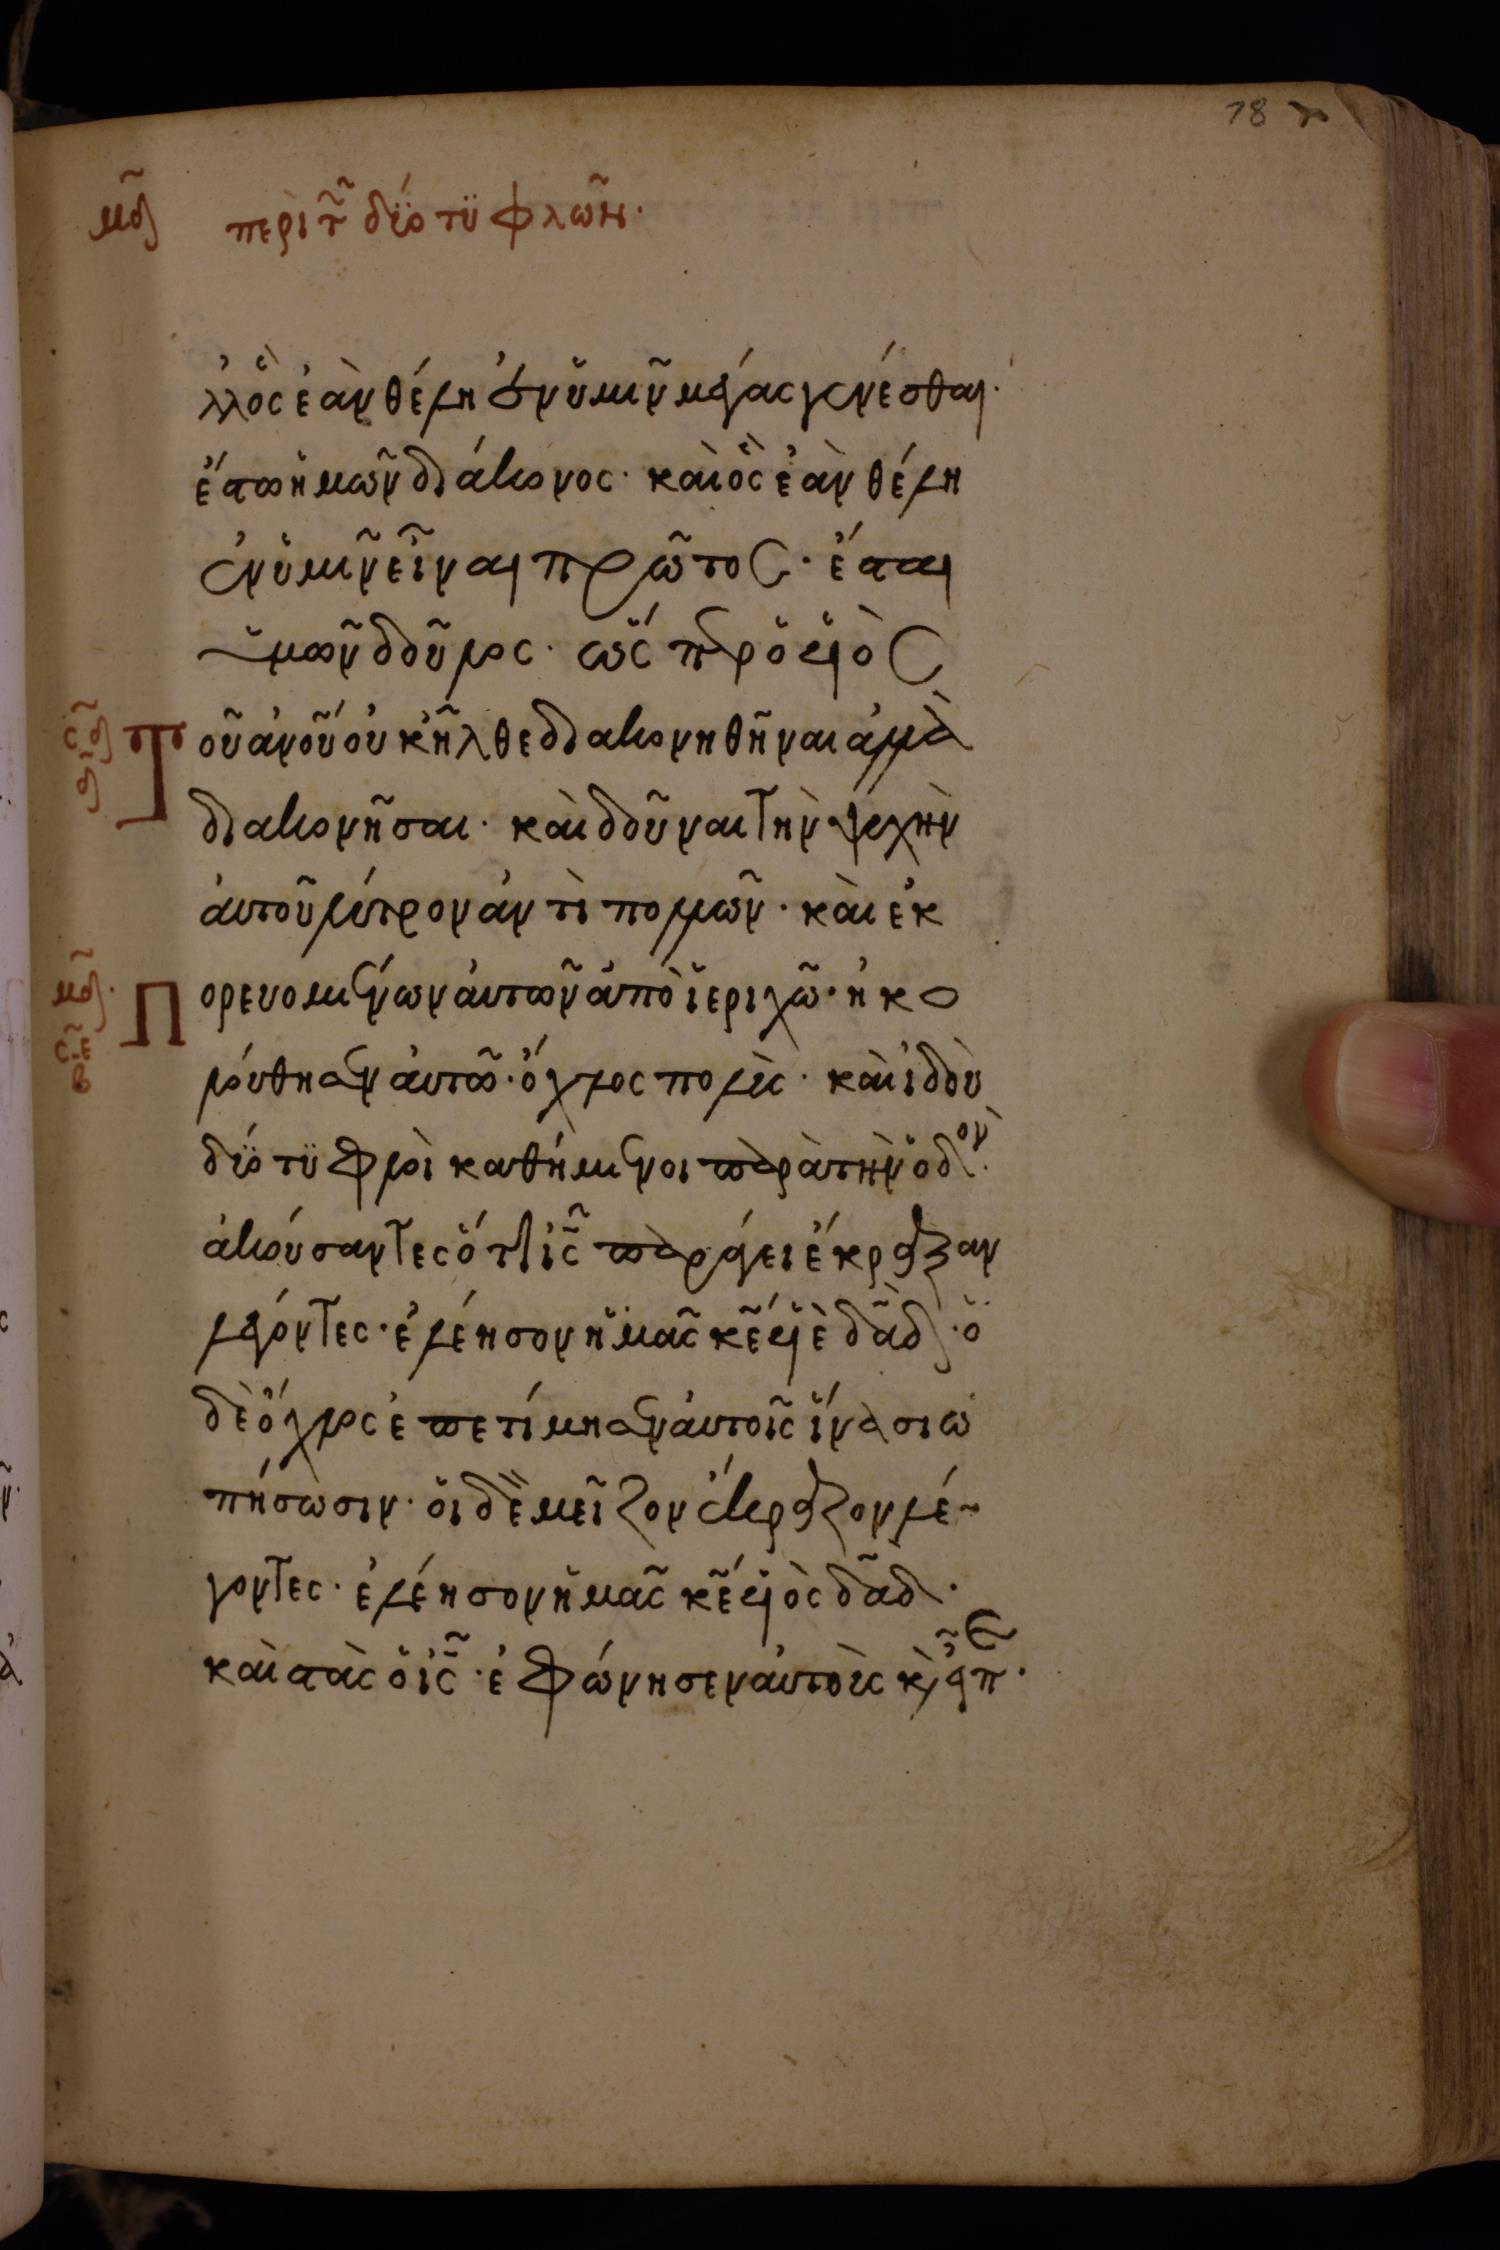 78
περὶ τῶ δύο τυφλῶν·
λλὸς ἐὰν θέλη ἐν ὑμῖν μέγας γενέσθαι·
ἔστω ἡμῶν διάκονος· καὶ ὃς ἐὰν θέλη
ἐν ὑμῖν εἶναι πρῶτος· ἔσται
ὑμῶν δοῦλος· ὥσπερ ὁ υἱὸς
Τοῦ ἀνοῦ οὐκ ἦλθε διακονηθῆναι ἀλλὰ
διακονῆσαι· καὶ δοῦναι τὴν ψυχὴν
ἀυτοῦ λύτρον ἀντὶ πολλῶν· καὶ ἐκ
Πορευομένων ἀυτῶν ἀπὸ ἱεριχῶ· ἠκο
λούθησαν ἀυτῶ· ὄχλος πολὺς· καὶ ἰδοὺ
δύο τυφλοὶ καθήμενοι παρὰ τὴν ὁδόν·
ἀκούσαντες ὅτι ις παράγει ἔκραξαν
λέγοντες· ἐλέησον ἡμᾶς κε υἱὲ δαδ· ὁ
δὲ ὄχλος ἐπετίμησαν ἀυτοῖς ἵνα σιω
πήσωσιν· οἱ δὲ μεῖζον ἔκραζον λέ
γοντες· ἐλέησον ἡμᾶς κε υἱὸς δαδ·
καὶ στὰς ὁ ις· ἐφώνησεν ἀυτοὺς κὶ εἶπε·